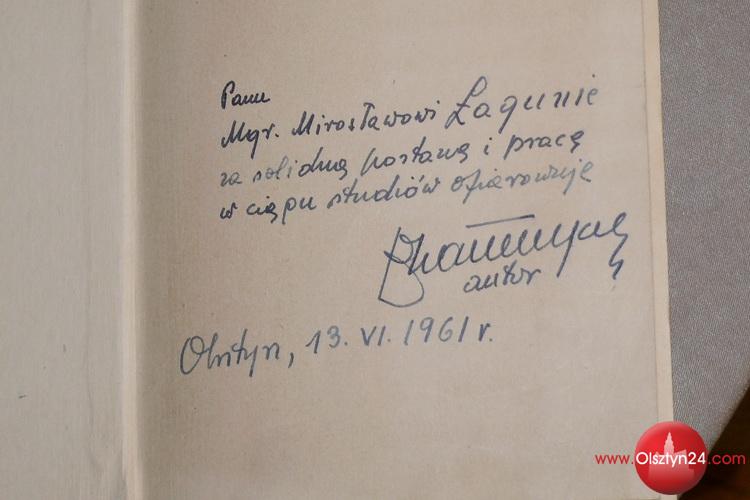 Panu
Mgr. Mirosławowi Łagunie
za solidną postawę i pracę
w ciągu studiów ofiarowuje
autor
Olsztyn, 13. VI. 1961 r.
www.Olsztyn24.com